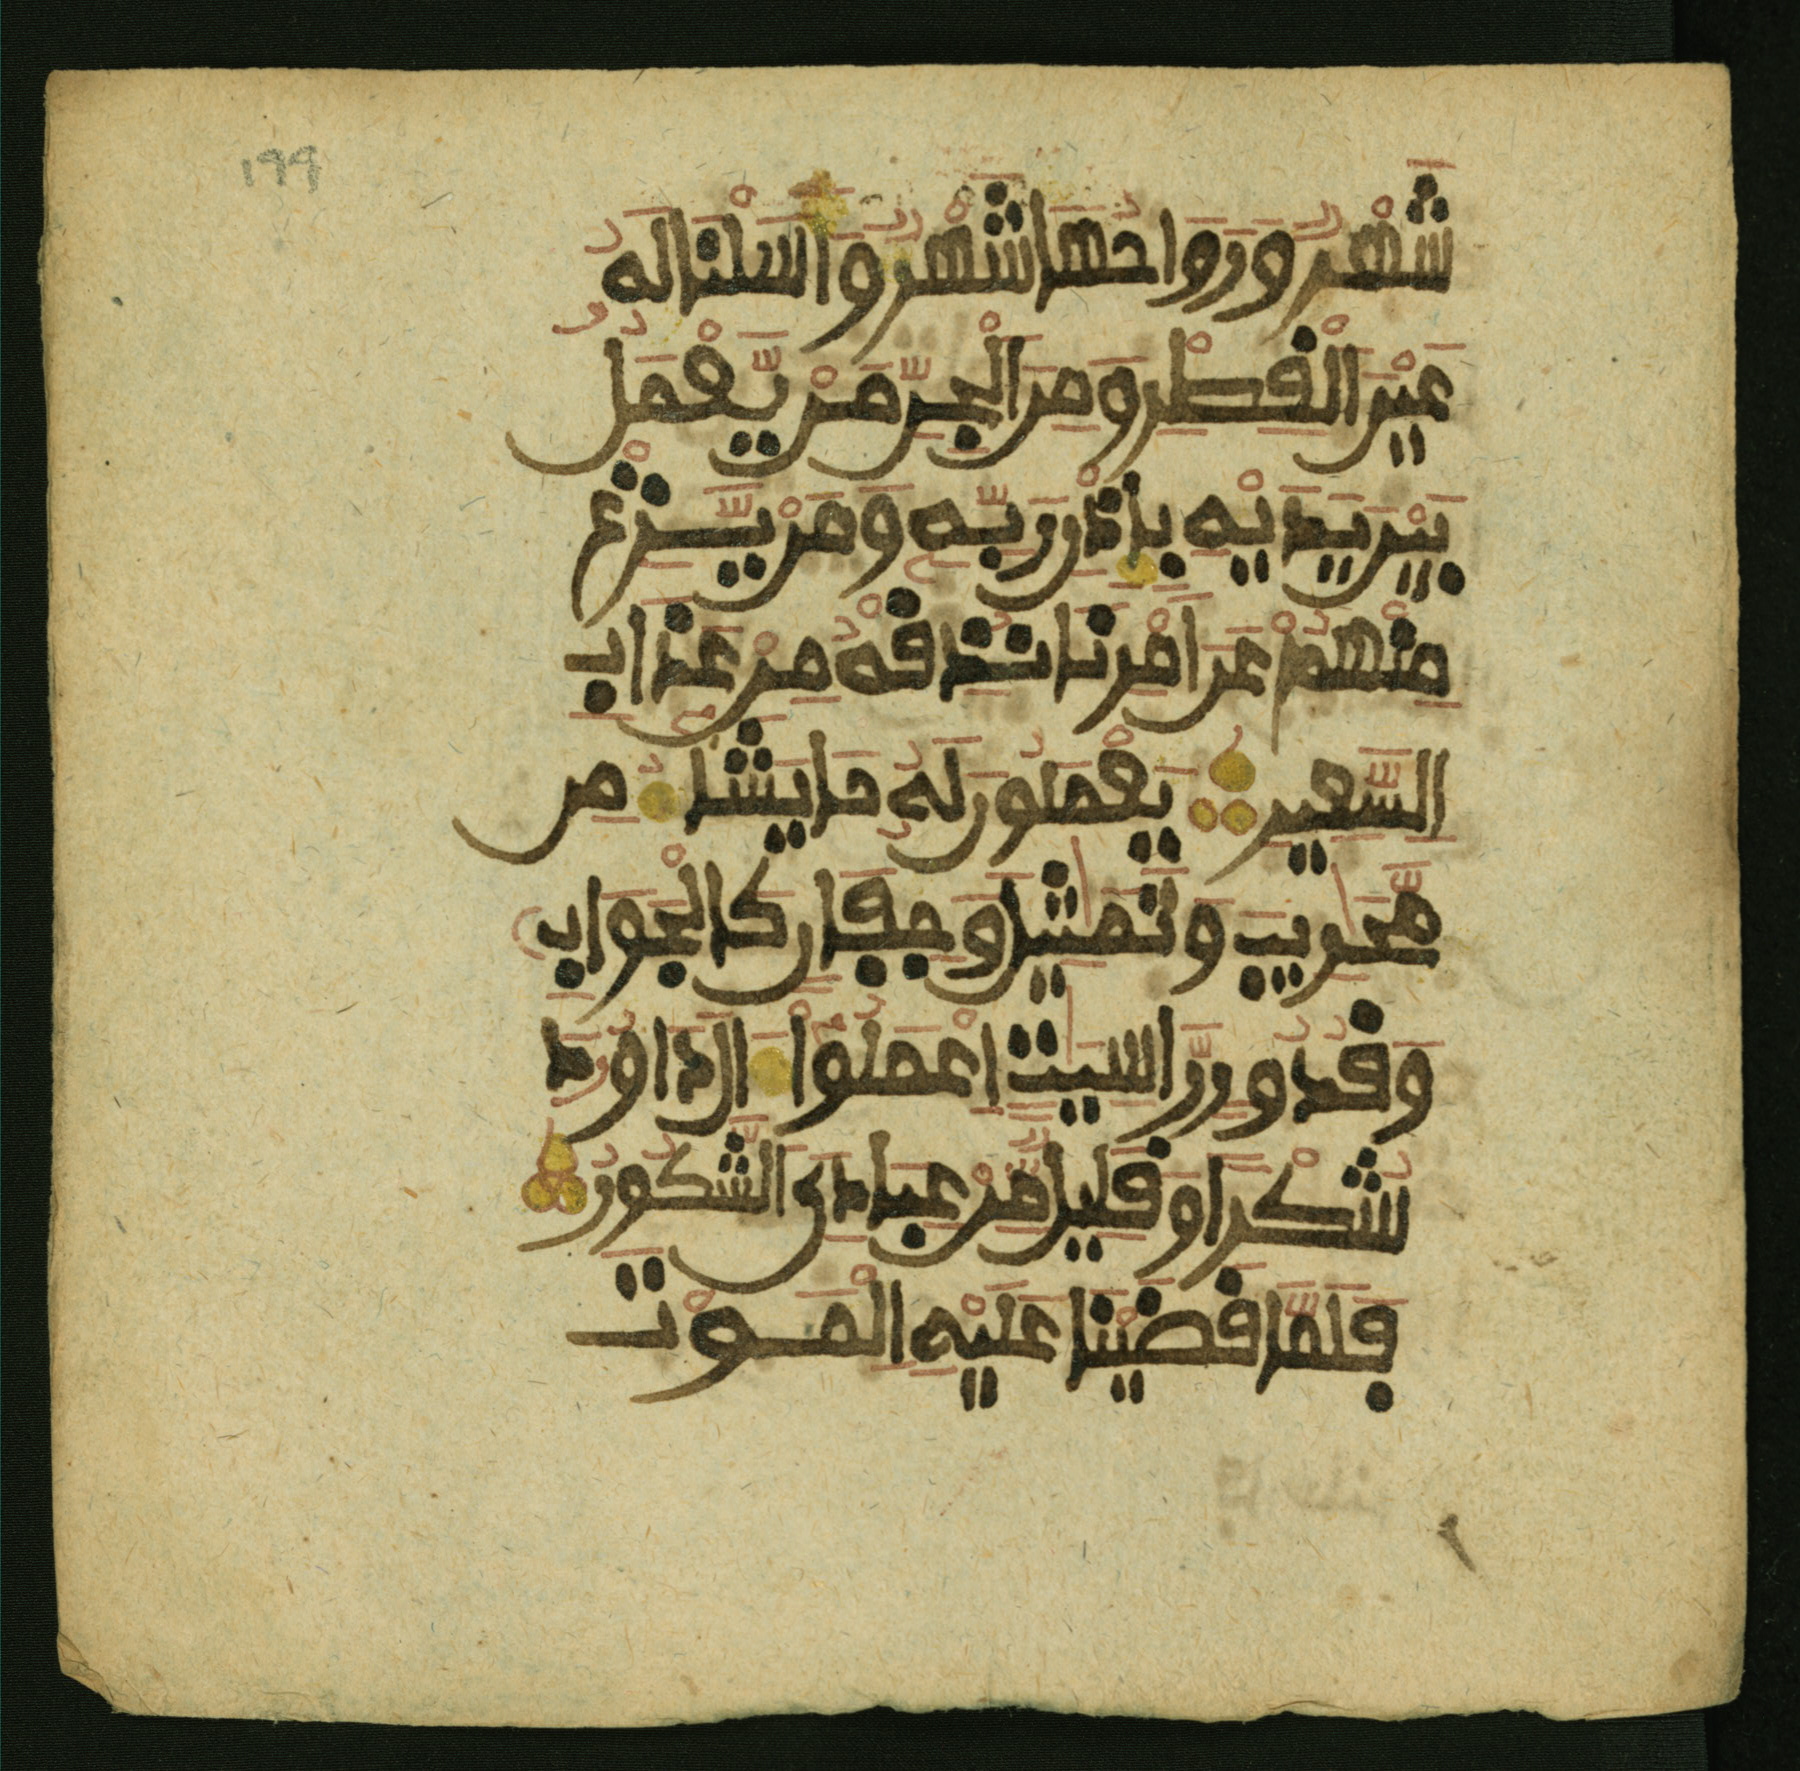 ١٩٩
شَهْرٌ وَرَوَاحُهَا شَهْرٌ وَأَسَلْنَا لَهُ
عَيْنَ الْقِطْرِ وَمِنَ الْجِنِّ مَنْ يَّعْمَلُ
بَيْنَ يَدَيْهِ بِإِذْنِ رَبِّهِ وَمَنْ يَّزِغْ
مِنْهُمْ عَنَ امْرِنَا نُذِقْهُ مِنْ عَذَابِ
السَّعِيرِ يَعْمَلُونَ لَهُ مَا يَشَاءُ مِن
مَّحَٰرِيبَ وَتَمَٰثِيلَ وَجِفَانٍ كَالْجَوَابِ
وَقُدُورٍ رَّاسِيَٰتٍ اعْمَلُوا ءَالَ دَاوُودَ
شُكْرًا وَقَلِيلٌ مِّنْ عِبَادِيَ الشَّكُورُ
فَلَمَّا قَضَيْنَا عَلَيْهِ الْمَوْتَ